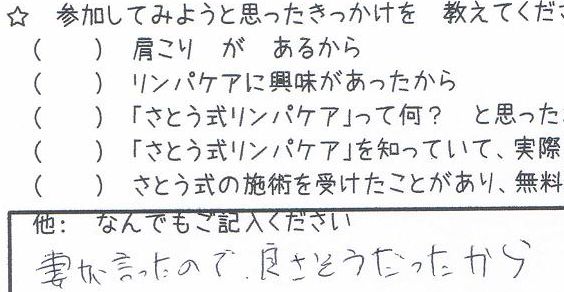 ☆ 参加してみようと思ったきっかけを 教えてくださ
( ) 肩こり が あるから
( ) リンパケアに興味があったから
( ) 「さとう式リンパケア」って何? と思った
( ) 「さとう式リンパケア」を知っていて、実際
( ) さとう式の施術を受けたことがあり、無料
他: なんでもご記入ください
妻が言ったので、良さそうだったから